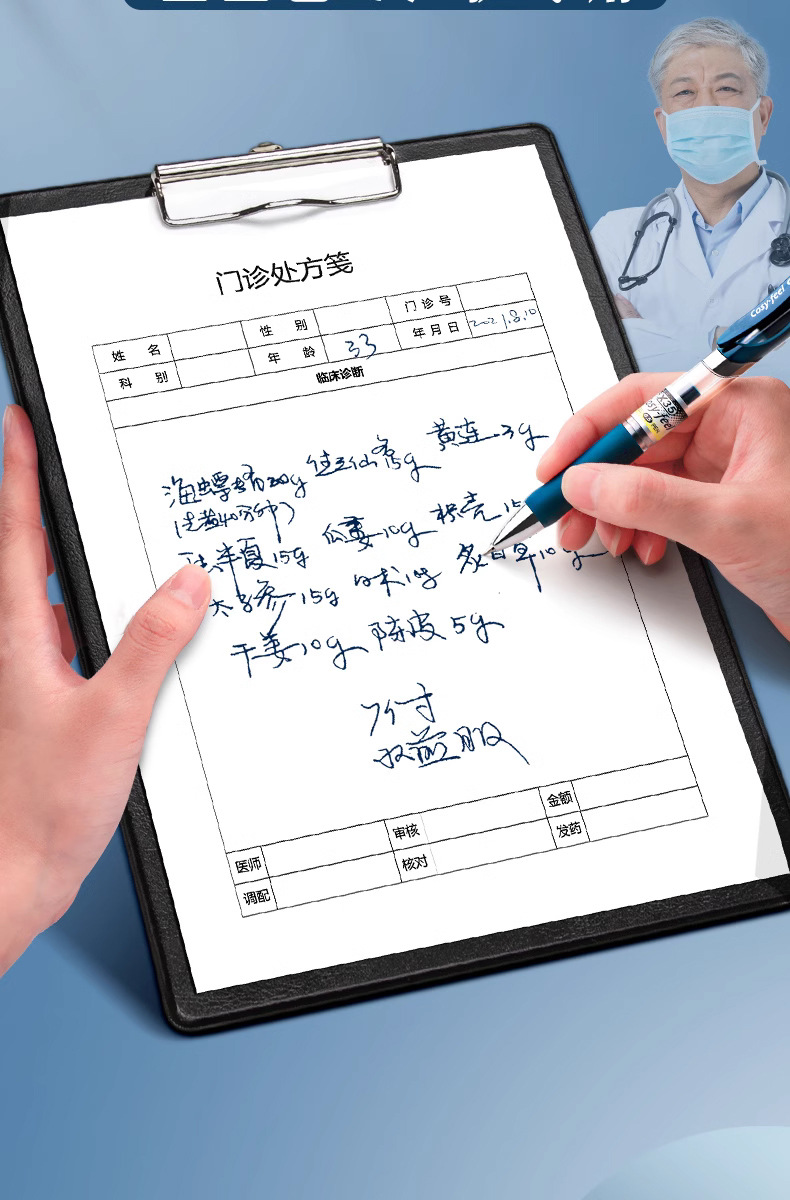 门诊处方笺
姓 名 性 别 门 诊 号
科 别 年 龄 33 年 月 日 2021.8.10
临床诊断
海螵蛸20g 15g 黄连3g
(先煎40分钟)
法半夏15g 瓜蒌10g 枳壳15
太子参15g 白术10g 炙甘草10g
干姜10g 陈皮5g
7付
水煎服
医师 审核 金额
调配 核对 发药
Easy-feel
X35
Easy-feel
PEN